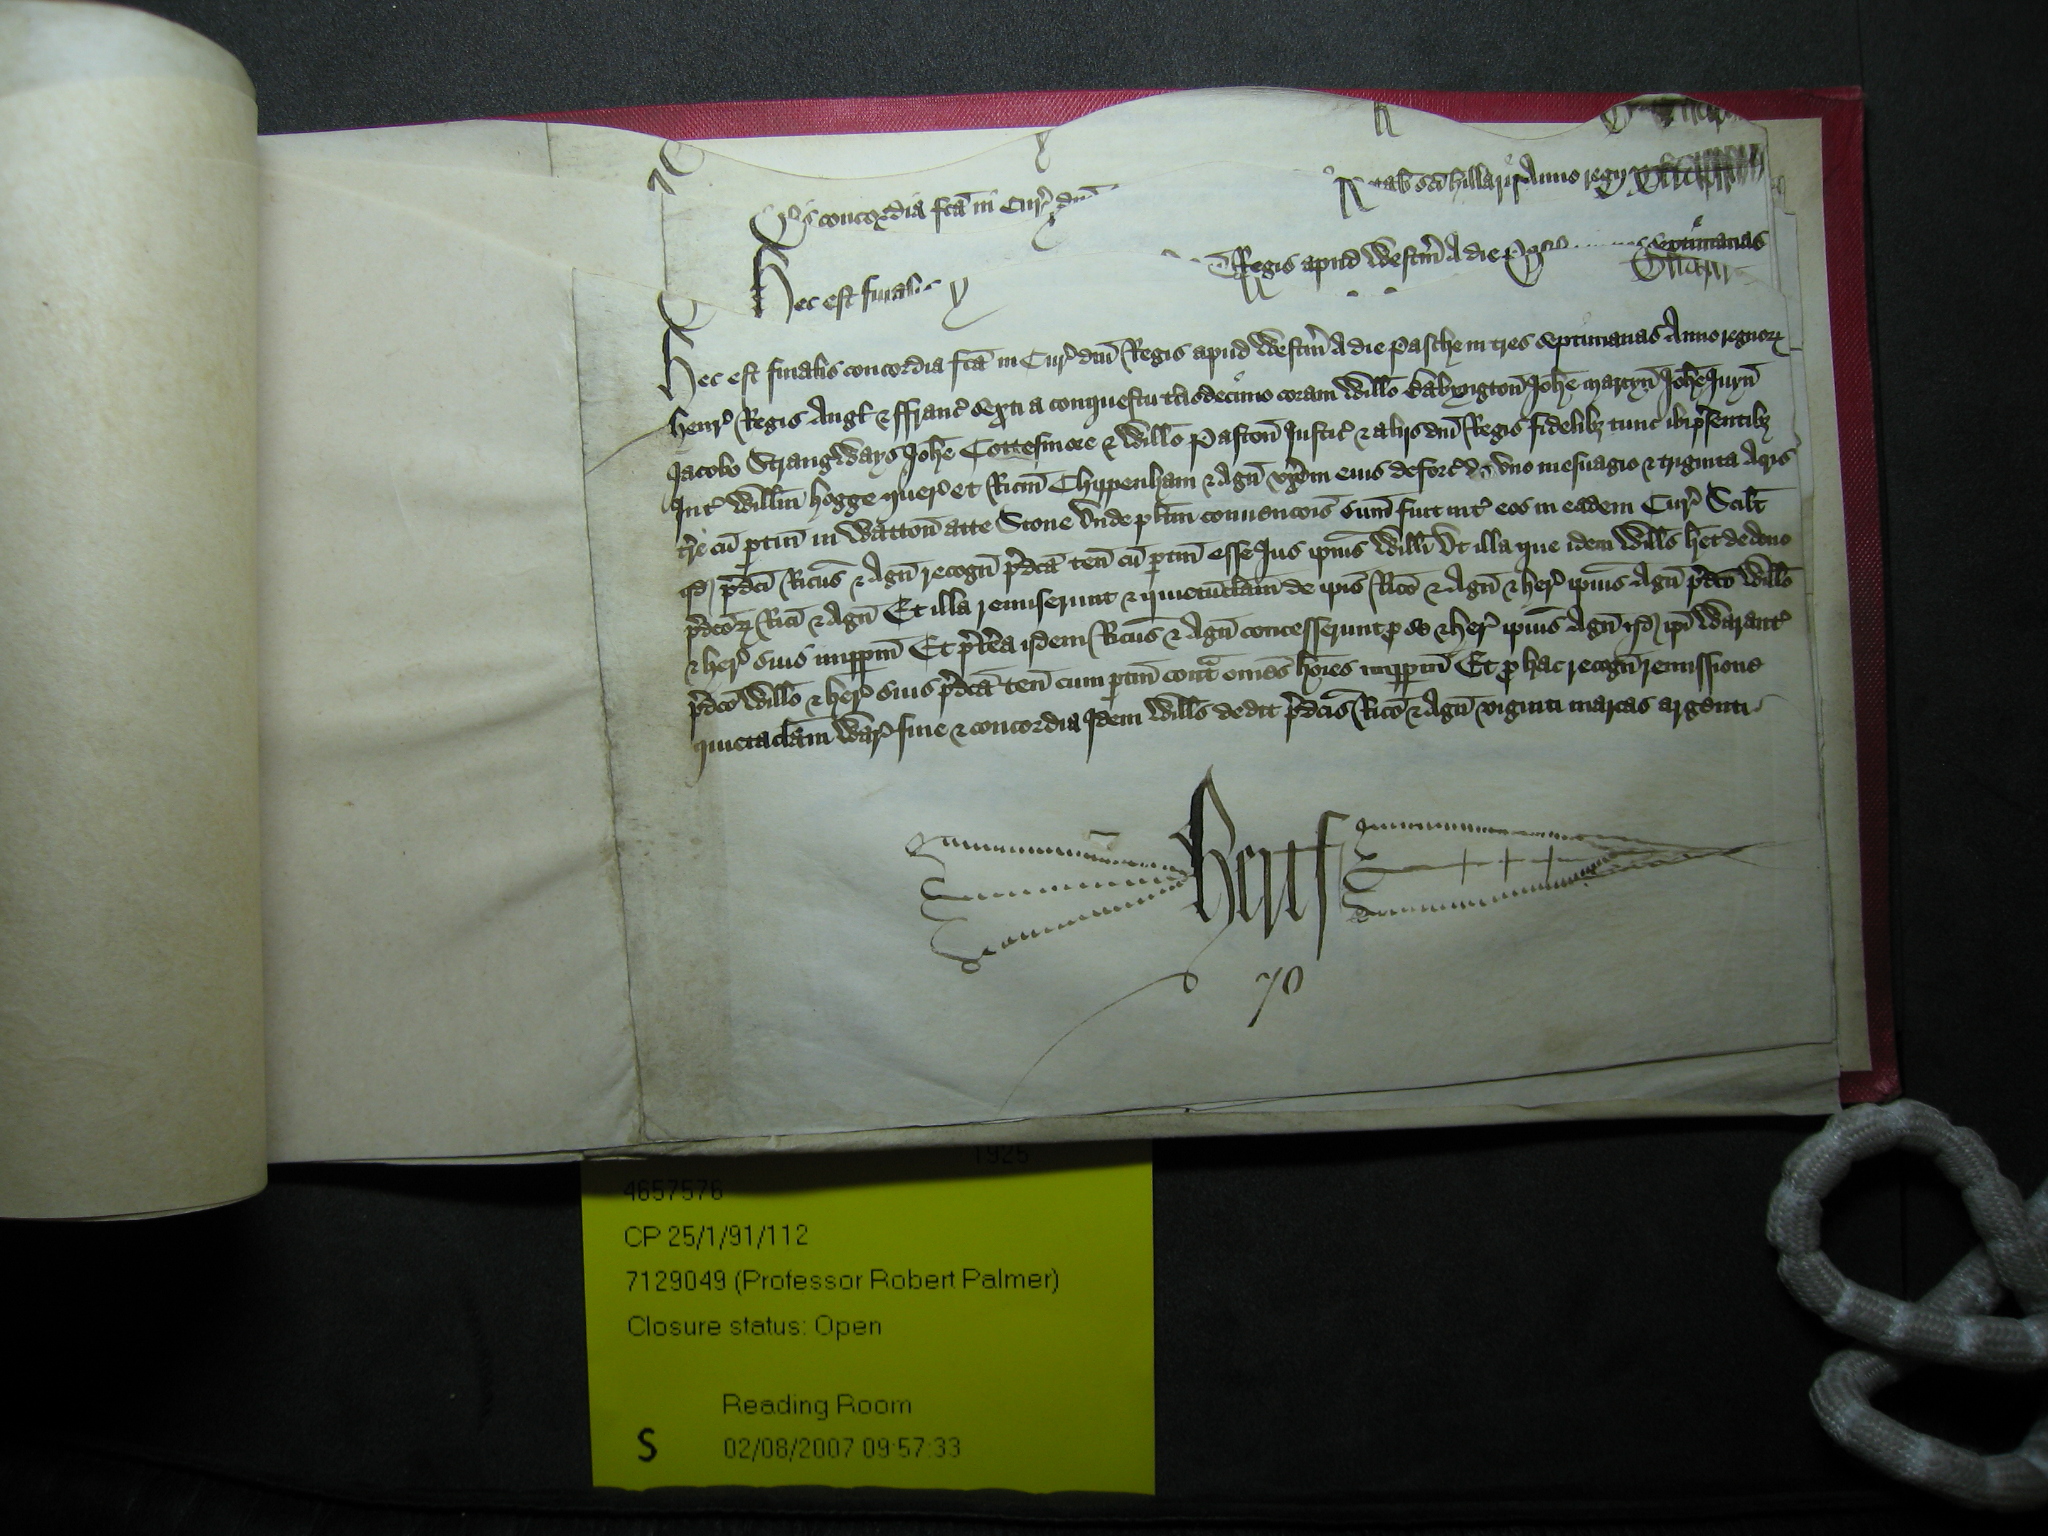 concordia fcã in Cur dnĩ
tab scĩ hillarij Anno regn
Hec est finalis
Regis apud Westm̃ A die septimanas
Hec est finalis concordia fcã in Cur̉ dnĩ Regis apud Westm̃ A die Pasche in tres septimanas Anno regnoꝝ
Henr̉ Regis Angl̃ & ffranc̉ sexti a conquestu tc̃iodecimo coram Willo Babyngton̉ Joh̃e Martyn̉ Joh̃e Juyn̉
Jacobo Strangways Joh̃e Cottesmore & Willo Paston̉ Justic̉ & alijs dnĩ Regis fidelibꝫ tunc ibi p̃sentibꝫ
Int̉ Willm̃ Hogge quer̉ et Ricm̃ Chippenham & Agñ vx̃em eius deforc̉ de vno mesuagio & triginta acris
tr̃e cũ ptiñ in Watton̉ atte Stone vnde pl̃itm conuencõis sum̃ fuit int̉ eos in eadem Cur̉ Scil̃t
qd̉ p̃dc̃i Ricũs & Agñ recogñ p̃dc̃a teñ cũ ptiñ esse Jus ipĩus Willi vt illa que idem Wills h̃et de dono
p̃dc̃oꝝ Ricĩ & Agñ Et illa remiserunt & quietũclam̃ de ipĩs Ricõ & Agñ & her̉ ipĩus Agñ p̃dc̃o Willo
& her̉ suis imppm̃ Et p̃t̃ea ijdem Ricũs & Agñ concesserunt p se & her̉ ipĩus Agñ qd̉ ipĩ Warant̉
p̃dc̃o Willo & her̉ suis p̃dc̃a teñ cum ptiñ cont̃ om̃es hõies imppm̃ Et p hac recogñ remissione
quietaclam̃ War̉ fine & concordia Idem Wills dedit p̃dc̃is Ricõ & Agñ viginti marcas argenti
Hertf
70
1925
4657576
CP 25/1/91/112
7129049 (Professor Robert Palmer)
Closure status: Open
Reading Room
S 02/08/2007 09:57:33